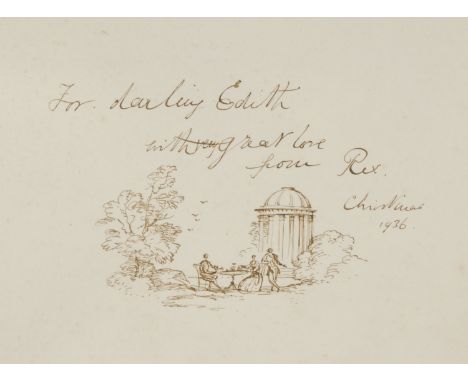 For darling Edith
with very great love
from Rex.
Christmas
1936.